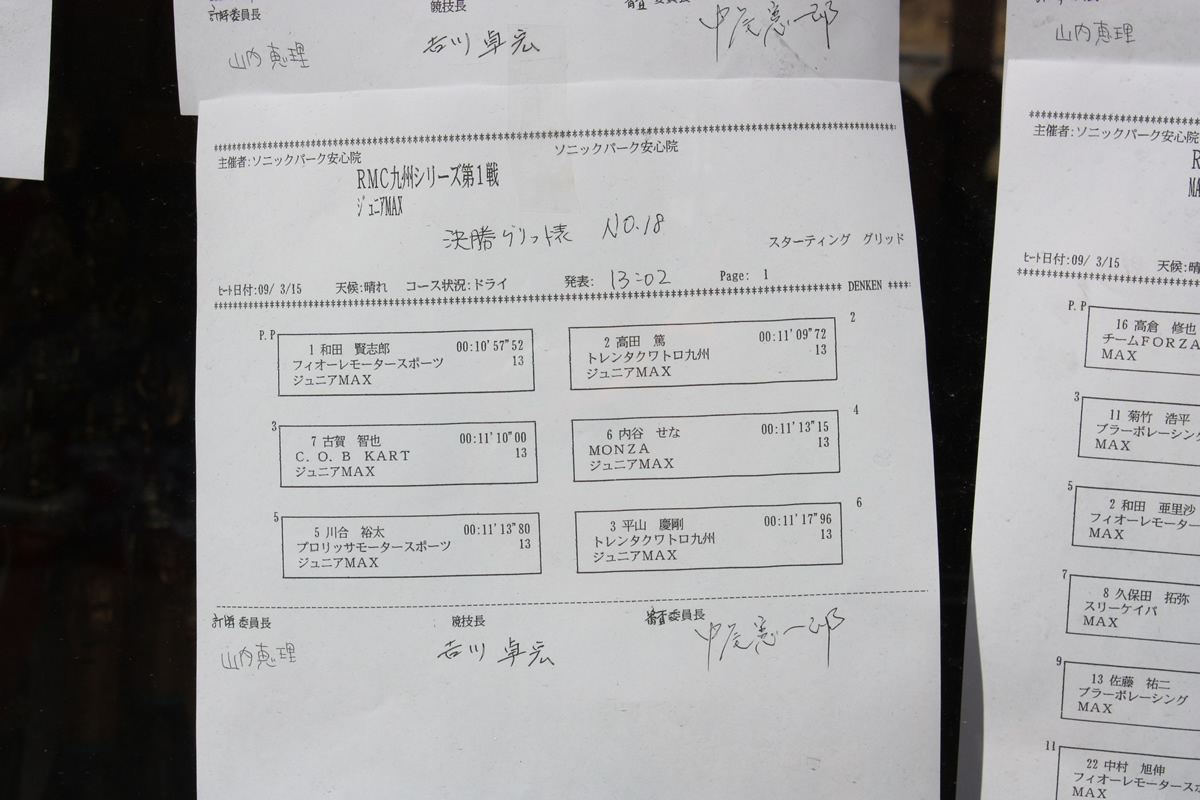 計時委員長
競技長
審査委員長
山内恵理
吉川卓宏
中尾憲一郎
山内恵理
主催者:ソニックパーク安心院
ソニックパーク安心院
RMC九州シリーズ第1戦
ジュニアMAX
決勝グリット表 NO.18
スターティング グリッド
ヒート日付:09/ 3/15 天候:晴れ コース状況:ドライ 発表: 13:02 Page: 1
DENKEN
P.P
1 和田 賢志郎 00:10'57"52
フィオーレモータースポーツ 13
ジュニアMAX
2
2 高田 篤 00:11'09"72
トレンタクワトロ九州 13
ジュニアMAX
3
7 古賀 智也 00:11'10"00
C.O.B KART 13
ジュニアMAX
4
6 内谷 せな 00:11'13"15
MONZA 13
ジュニアMAX
5
5 川合 裕太 00:11'13"80
プロリッサモータースポーツ 13
ジュニアMAX
6
3 平山 慶剛 00:11'17"96
トレンタクワトロ九州 13
ジュニアMAX
計時委員長
競技長
審査委員長
山内恵理
吉川卓宏
中尾憲一郎
主催者:ソニックパーク安心院
ヒート日付:09/ 3/15 天候:晴
P.P
16 高倉 修也
チームFORZA
MAX
3
11 菊竹 浩平
ブラーボレーシング
MAX
5
2 和田 亜里沙
フィオーレモーター
MAX
7
8 久保田 拓弥
スリーケイパ
MAX
9
13 佐藤 祐二
ブラーボレーシング
MAX
11
22 中村 旭伸
フィオーレモータース
MAX